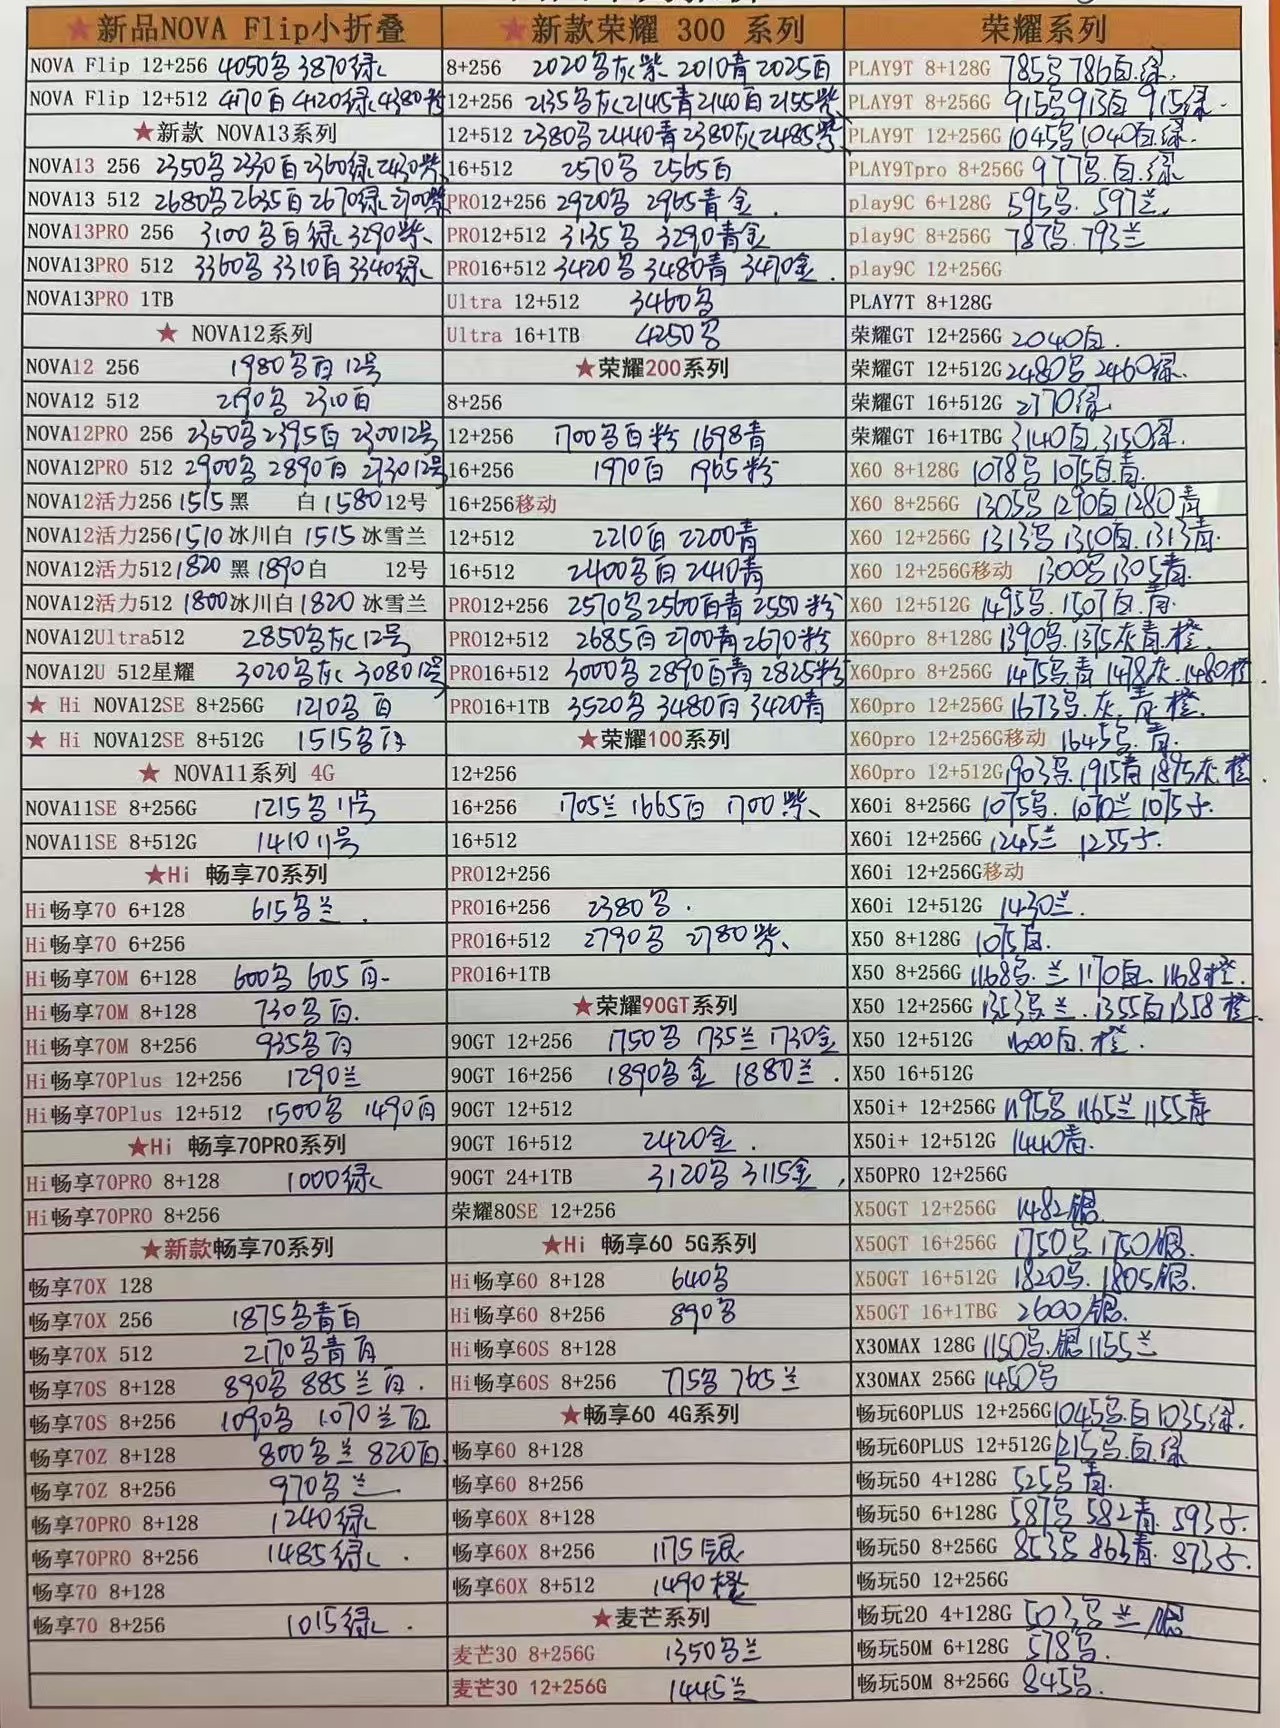 ★新品NOVA Flip小折叠
NOVA Flip 12+256 4050黑 3870绿
NOVA Flip 12+512 4170白 4120绿 4380粉
★新款 NOVA13系列
NOVA13 256 2350黑 2330白 2360绿 2430紫
NOVA13 512 2680黑 2635白 2670绿 2700紫
NOVA13PRO 256 3100黑白绿 3290紫
NOVA13PRO 512 3360黑 3310白 3340绿
NOVA13PRO 1TB
★ NOVA12系列
NOVA12 256 1980黑白 12号
NOVA12 512 2190黑 2310白
NOVA12PRO 256 2350黑 2395白 2300 12号
NOVA12PRO 512 2900黑 2890白 2730 12号
NOVA12活力256 1515 黑 白 1580 12号
NOVA12活力256 1510 冰川白 1515 冰雪兰
NOVA12活力512 1820 黑 1890 白 12号
NOVA12活力512 1800 冰川白 1820 冰雪兰
NOVA12Ultra512 2850黑灰 12号
NOVA12U 512星耀 3020黑灰 3080 12号
★ Hi NOVA12SE 8+256G 1210黑 白
★ Hi NOVA12SE 8+512G 1515黑白
★ NOVA11系列 4G
NOVA11SE 8+256G 1215黑 11号
NOVA11SE 8+512G 1410 11号
★Hi 畅享70系列
Hi畅享70 6+128 615黑兰
Hi畅享70 6+256
Hi畅享70M 6+128 600黑 605白
Hi畅享70M 8+128 730黑白
Hi畅享70M 8+256 935黑白
Hi畅享70Plus 12+256 1290兰
Hi畅享70Plus 12+512 1500黑 1490白
★Hi 畅享70PRO系列
Hi畅享70PRO 8+128 1000绿
Hi畅享70PRO 8+256
★新款畅享70系列
畅享70X 128
畅享70X 256 1875黑青白
畅享70X 512 2170黑青白
畅享70S 8+128 890黑 885兰白
畅享70S 8+256 1090黑 1070兰白
畅享70Z 8+128 800黑兰 820白
畅享70Z 8+256 970黑兰
畅享70PRO 8+128 1240绿
畅享70PRO 8+256 1485绿
畅享70 8+128
畅享70 8+256 1015绿
★新款荣耀 300 系列
8+256 2020黑灰紫 2010青 2025白
12+256 2135黑灰 2145青 2140白 2155紫
12+512 2380黑 2440青 2380灰 2485紫
16+512 2570黑 2565白
PRO12+256 2920黑 2965青金
PRO12+512 3135黑 3290青金
PRO16+512 3420黑 3480青 3470金
Ultra 12+512 3460黑
Ultra 16+1TB 4250黑
★荣耀200系列
8+256
12+256 1700黑白粉 1698青
16+256 1970白 1965粉
16+256移动
12+512 2210白 2200青
16+512 2400黑白 2410青
PRO12+256 2570黑 2560白青 2550粉
PRO12+512 2685白 2700青 2670粉
PRO16+512 3000黑 2890白青 2825粉
PRO16+1TB 3520黑 3480白 3420青
★荣耀100系列
12+256
16+256 1705兰 1665白 1700紫
16+512
PRO12+256
PRO16+256 2380黑
PRO16+512 2790黑 2780紫
PRO16+1TB
★荣耀90GT系列
90GT 12+256 1750黑 1735兰 1730金
90GT 16+256 1890黑金 1880兰
90GT 12+512
90GT 16+512 2420金
90GT 24+1TB 3120黑 3115金
荣耀80SE 12+256
★Hi 畅享60 5G系列
Hi畅享60 8+128 640黑
Hi畅享60 8+256 890黑
Hi畅享60S 8+128
Hi畅享60S 8+256 775黑 765兰
★畅享60 4G系列
畅享60 8+128
畅享60 8+256
畅享60X 8+128
畅享60X 8+256 1175银
畅享60X 8+512 1490橙
★麦芒系列
麦芒30 8+256G 1350黑兰
麦芒30 12+256G 1445兰
荣耀系列
PLAY9T 8+128G 785黑 786白.绿
PLAY9T 8+256G 915黑 913白 915绿
PLAY9T 12+256G 1045黑 1040白.绿
PLAY9Tpro 8+256G 977黑.白.绿
play9C 6+128G 595黑. 597兰
play9C 8+256G 787黑. 793兰
play9C 12+256G
PLAY7T 8+128G
荣耀GT 12+256G 2040白
荣耀GT 12+512G 2480黑 2460绿
荣耀GT 16+512G 2770绿
荣耀GT 16+1TBG 3140白. 3150绿
X60 8+128G 1078黑 1075白青
X60 8+256G 1305黑 1290白 1280青
X60 12+256G 1313黑. 1310白. 1313青
X60 12+256G移动 1300黑 1305青
X60 12+512G 1495黑. 1507白.青
X60pro 8+128G 1390黑. 1375灰青.橙
X60pro 8+256G 1475黑青 1478灰. 1480橙
X60pro 12+256G 1673黑.灰.青.橙
X60pro 12+256G移动 1645黑.青
X60pro 12+512G 1903黑. 1915青 1895灰.橙
X60i 8+256G 1075黑. 1070兰 1075子
X60i 12+256G 1245兰 1255子
X60i 12+256G移动
X60i 12+512G 1430兰
X50 8+128G 1075白
X50 8+256G 1168黑.兰 1170白. 1168橙
X50 12+256G 1353黑兰. 1355白 1358橙
X50 12+512G 1600白.橙
X50 16+512G
X50i+ 12+256G 1195黑 1165兰 1155青
X50i+ 12+512G 1440青
X50PRO 12+256G
X50GT 12+256G 1482银
X50GT 16+256G 1750黑. 1750银
X50GT 16+512G 1820黑. 1805银
X50GT 16+1TBG 2600银
X30MAX 128G 1150黑.银 1155兰
X30MAX 256G 1450黑
畅玩60PLUS 12+256G 1045黑.白 1035绿
畅玩60PLUS 12+512G 1215黑.白.绿
畅玩50 4+128G 525黑青
畅玩50 6+128G 587黑 582青. 593子
畅玩50 8+256G 853黑 863青. 873子
畅玩50 12+256G
畅玩20 4+128G 503黑兰/银
畅玩50M 6+128G 578黑
畅玩50M 8+256G 845黑